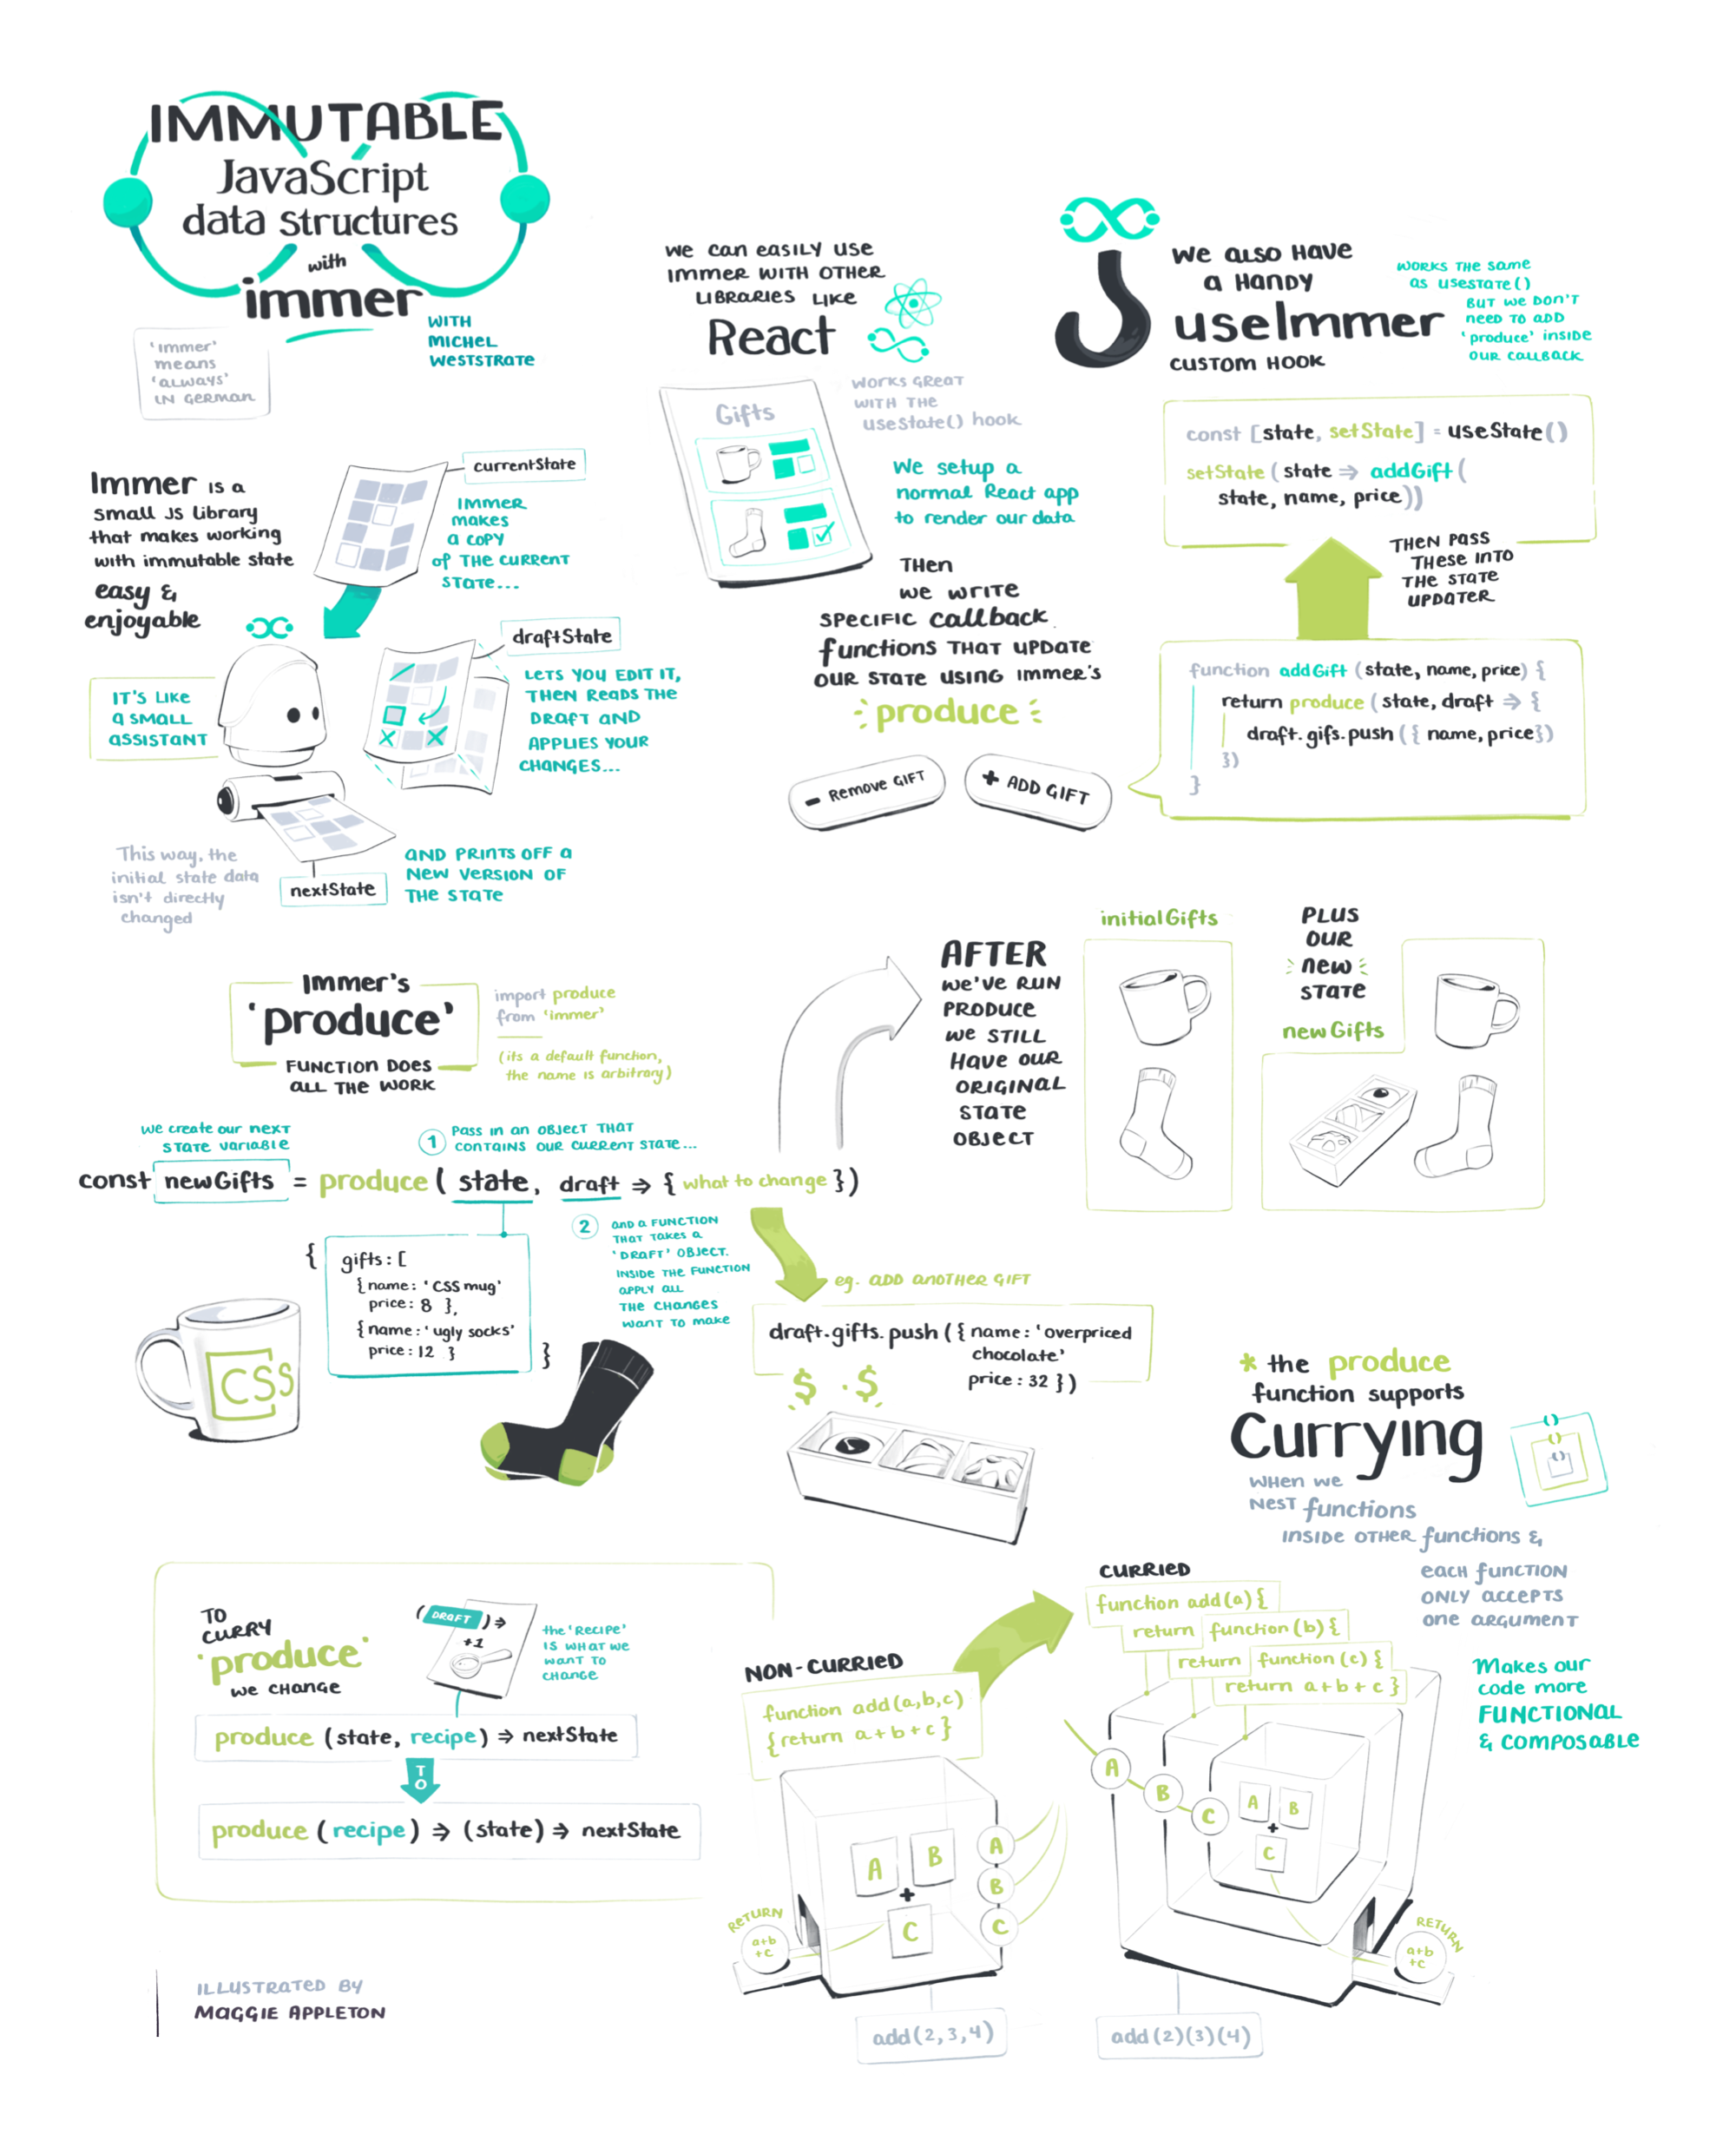 IMMUTABLE
JavaScript
data structures
with
immer
WITH
MICHEL
WESTSTRATE
'immer'
means
'always'
in German
Immer is a
small JS library
that makes working
with immutable state
easy &
enjoyable
currentState
IMMER
makes
a copy
of the current
state...
draftState
Lets you edit it,
then reads the
draft and
applies your
changes...
It's like
a small
assistant
This way, the
initial state data
isn't directly
changed
nextState
and prints off a
new version of
the state
We can easily use
immer with other
libraries like
React
works great
with the
useState() hook
Gifts
We setup a
normal React app
to render our data
Then
we write
specific callback
functions that update
our state using immer's
produce
- Remove Gift
+ ADD GIFT
We also have
a handy
useImmer
custom hook
works the same
as useState()
but we don't
need to add
'produce' inside
our callback
const [state, setState] = useState()
setState (state => addGift (
state, name, price))
Then pass
these into
the state
updater
function addGift (state, name, price) {
return produce (state, draft => {
draft.gifs.push ({ name, price})
})
}
Immer's
'produce'
function does
all the work
import produce
from 'immer'
(its a default function,
the name is arbitrary)
We create our next
state variable
1 Pass in an object that
contains our current state...
const newGifts = produce ( state, draft => { what to change })
{ gifts: [
{ name: 'CSS mug'
price: 8 },
{ name: 'ugly socks'
price: 12 }
}
CSS
2 and a function
that takes a
'draft' object.
Inside the function
apply all
the changes
want to make
eg. add another gift
draft.gifts.push ({ name: 'overpriced
chocolate'
price: 32 })
$ $
AFTER
we've run
produce
we still
have our
original
state
object
initialGifts
PLUS
our
new
state
newGifts
* the produce
function supports
Currying
when we
nest functions
inside other functions &
each function
only accepts
one argument
( )
( )
( )
Makes our
code more
FUNCTIONAL
& COMPOSABLE
To
curry
'produce'
we change
(DRAFT) =>
+1
the 'recipe'
is what we
want to
change
produce (state, recipe) => nextState
TO
produce (recipe) => (state) => nextState
NON-CURRIED
function add (a,b,c)
{return a+b+c}
A B
+
C
A
B
C
RETURN
a+b
+c
add(2,3,4)
CURRIED
function add (a) {
return function (b) {
return function (c) {
return a+b+c }
A
B
C
A B
+
C
RETURN
a+b
+c
add(2)(3)(4)
ILLUSTRATED BY
MAGGIE APPLETON